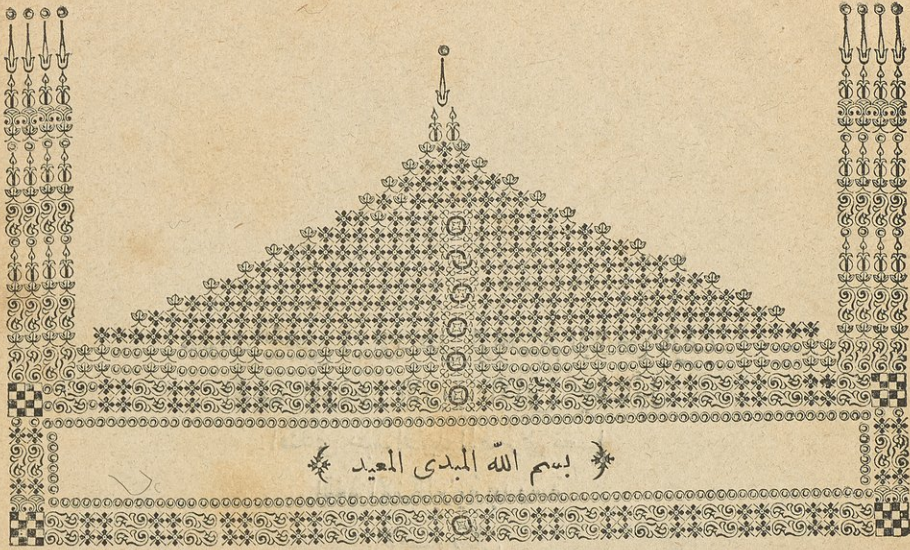 بسم الله المبدى المعيد